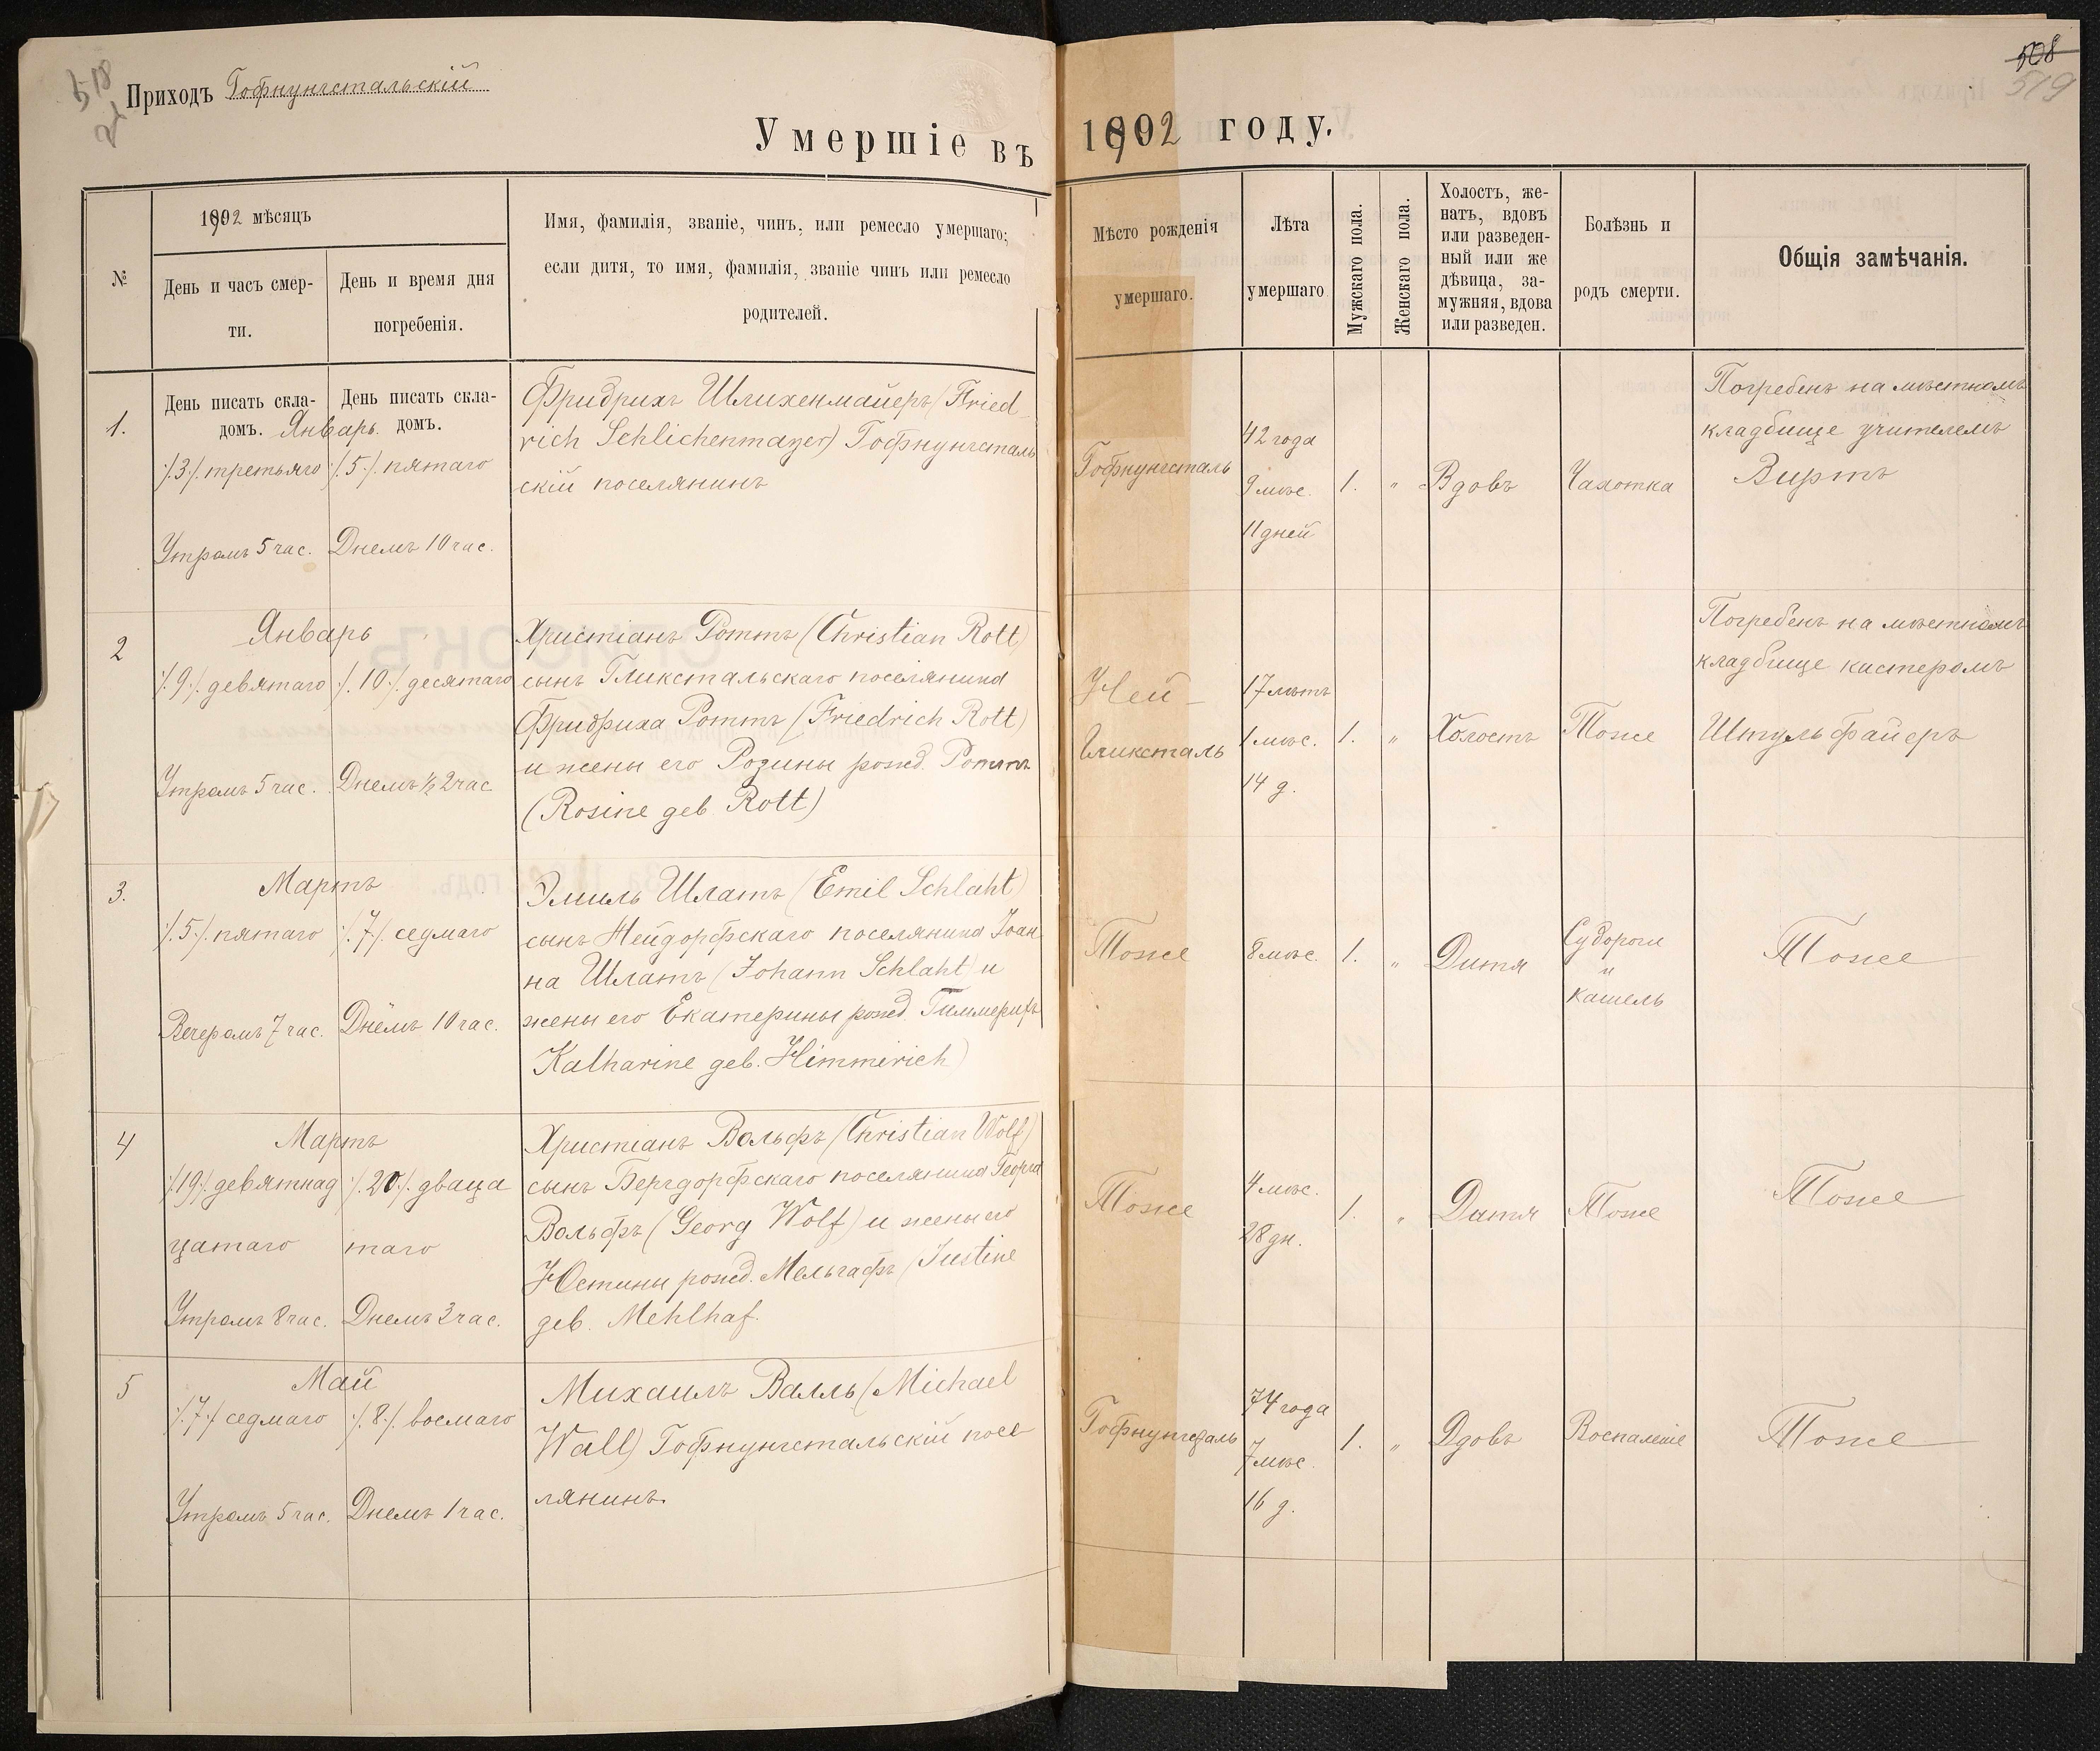 518
Приходъ Гофнунгстальскій
Умершіе въ
№
1902 мѣсяцъ
День и часъ смер-
ти.
День и время дня
погребенія.
Имя, фамилія, званіе, чинъ, или ремесло умершаго;
если дитя, то имя, фамилія, званіе чинъ или ремесло
родителей.
1.
День писать скла-
домъ.
День писать скла-
домъ.
Январь.
/.3./. третьяго
/.5./. пятаго
Утромъ 5 час.
Днемъ 10 час.
Фридрихъ Шлихенмайеръ (Fried-
rich Schlichenmayer) Гофнунгсталь
скій поселянинъ
2
Январь
/.9./. девятаго
/.10./. десятаго
Утромъ 5 час.
Днемъ ½ 2 час
Христіанъ Роттъ (Christian Rott)
сынъ Гликстальскаго поселянина
Фридриха Роттъ (Friedrich Rott)
и жены его Розины рожд. Роттъ
(Rosine geb. Rott)
3.
Мартъ
/.5./. пятаго
/.7./. седмаго
Вечеромъ 7 час.
Днемъ 10 час.
Эмиль Шлатъ (Emil Schlaht)
сынъ Нейдорфскаго поселянина Іоан
на Шлатъ (Johann Schlaht) и
жены его Екатерины рожд. Гиммерихъ
Katharine geb. Himmerich)
4
Мартъ
/.19./. девятнад
цатаго
/.20./. дваца
таго
Утромъ 8 час.
Днемъ 3 час.
Христіанъ Вольфъ (Christian Wolf)
сынъ Бергдорфскаго поселянина Георга
Вольфъ (Georg Wolf) и жены его
Юстины рожд. Мельгафъ (Justine
geb. Mehlhaf.
5
Май
/.7./. седмаго
/.8./. восмаго
Утромъ 5 час.
Днемъ 1 час.
Михаилъ Валль (Michael
Wall) Гофнунгстальскій посе
лянинъ.
508
519
1902 году.
Мѣсто рожденія
умершаго.
Лѣта
умершаго
Мужскаго пола.
Женскаго пола.
Холостъ, же-
натъ, вдовъ
или разведен-
ный или же
дѣвица, за-
мужняя, вдова
или разведен.
Болѣзнь и
родъ смерти.
Общія замѣчанія.
Гофнунгсталь
42 года
9 мѣс.
11 дней
1.
"
Вдовъ
Чахотка
Погребенъ на мѣстномъ
кладбище учителемъ
Виртъ
Ней-
Гликсталь
17 лѣтъ
1 мѣс.
14 д.
1.
"
Холостъ
Тоже
Погребенъ на мѣстномъ
кладбище кастеромъ
Штульфайеръ
Тоже
8 мѣс.
1.
"
Дитя
Судороги
и
кашель
Тоже
Тоже
4 мѣс.
28 дн.
1.
"
Дитя
Тоже
Тоже
Гофнунгсталь
74 года
7 мѣс.
16 д.
1.
"
Вдовъ
Воспаленіе
Тоже